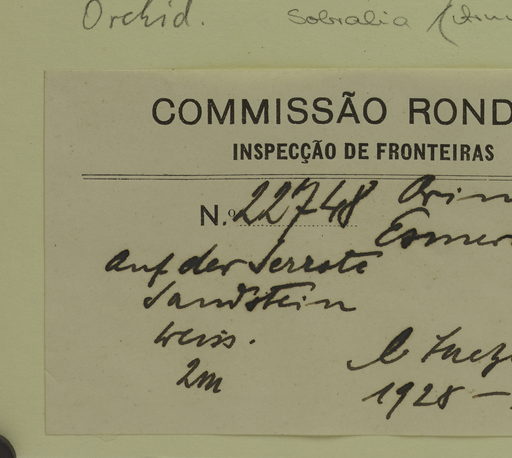 Orchid. Sobralia
COMMISSÃO ROND
INSPECÇÃO DE FRONTEIRAS
N.º 22748 Orin
Esmer
Auf der Serrote
Sandstein
weiss.
2m
1928 –